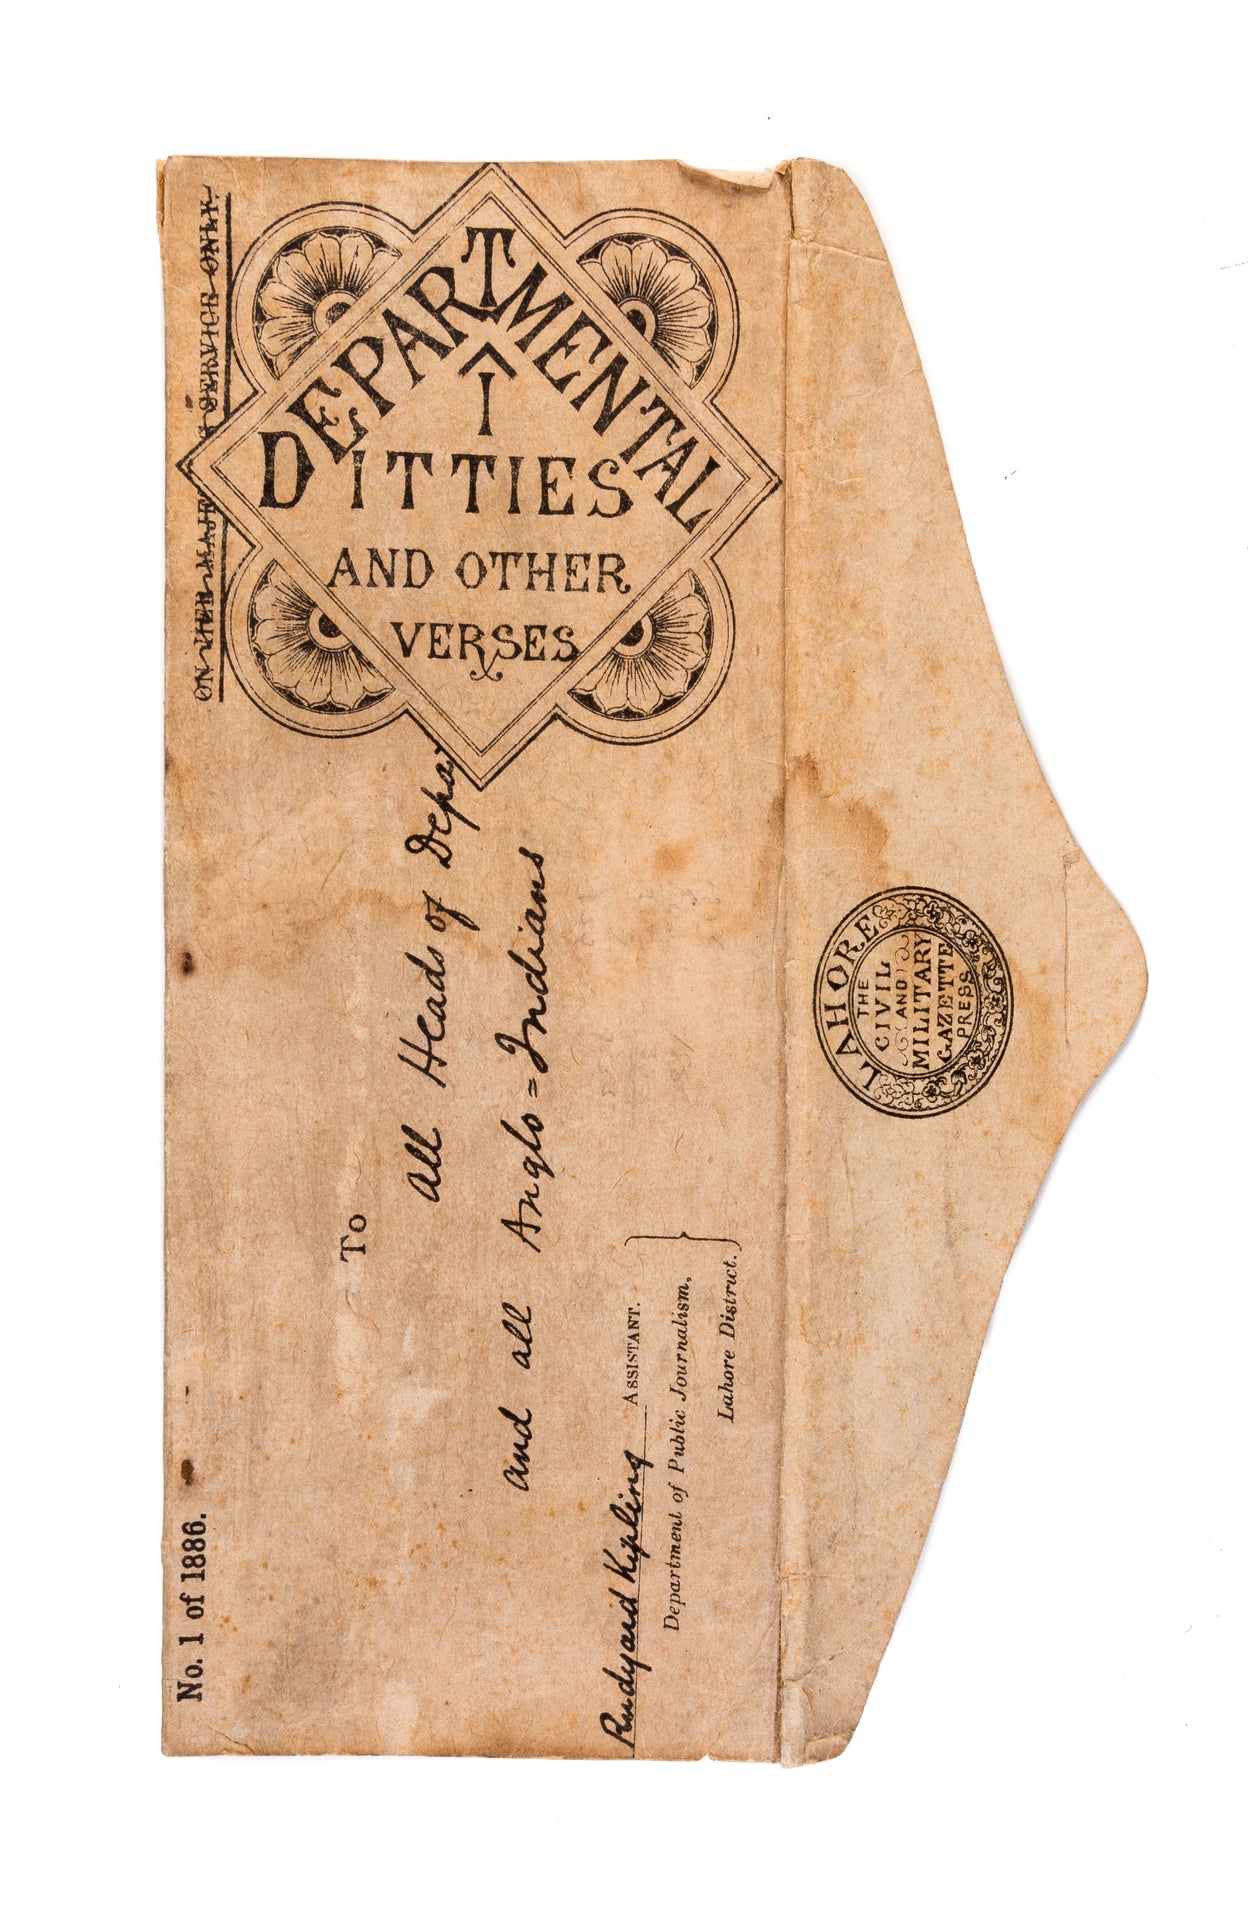 No. 1 of 1886.
ON HER MAJESTY'S SERVICE ONLY.
DEPARTMENTAL
I
DITTIES
AND OTHER
VERSES
To
all Heads of Depar
and all Anglo=Indians
Rudyard Kipling ASSISTANT.
Department of Public Journalism,
Lahore District.
LAHORE
THE
CIVIL
AND
MILITARY
GAZETTE
PRESS